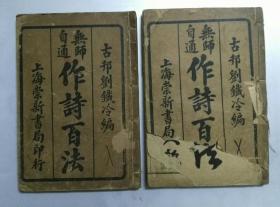 古邗劉鐵冷編
無師自通
作詩百法
上海崇新書局印行
古邗劉鐵冷編
無師自通
作詩百法
上海崇新書局